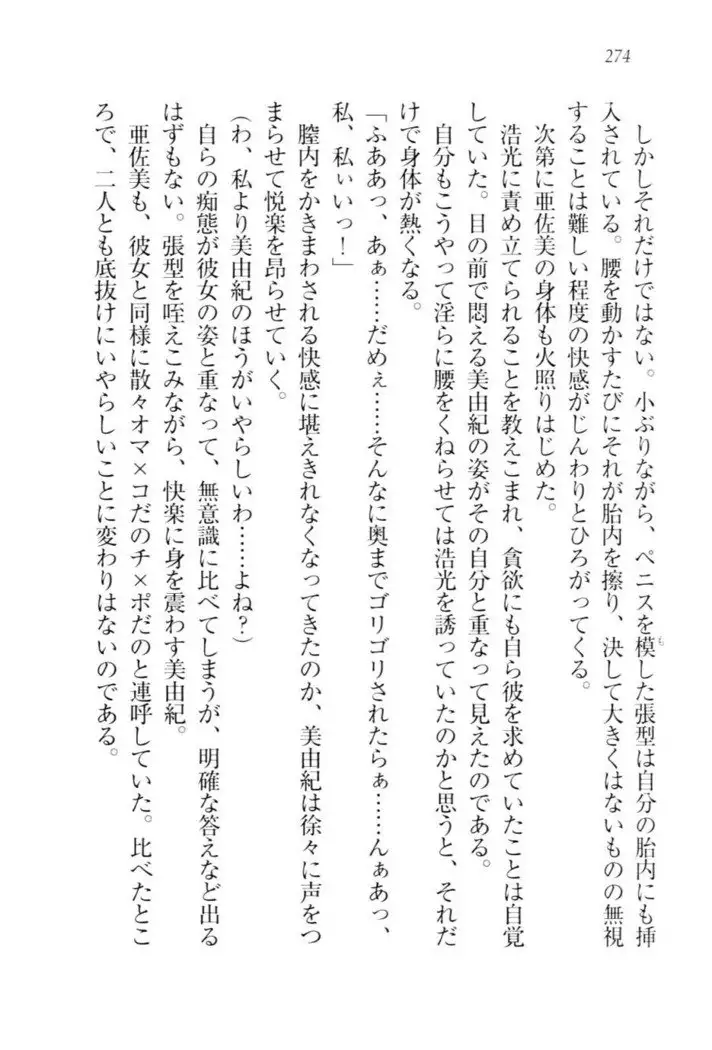 274
しかしそれだけではない。小ぶりながら、ペニスを模した張型は自分の胎内にも挿
も
入されている。腰を動かすたびにそれが胎内を擦り、決して大きくはないものの無視
することは難しい程度の快感がじんわりとひろがってくる。
次第に亜佐美の身体も火照りはじめた。
浩光に責め立てられることを教えこまれ、貪欲にも自ら彼を求めていたことは自覚
していた。目の前で悶える美由紀の姿がその自分と重なって見えたのである。
自分もこうやって淫らに腰をくねらせては浩光を誘っていたのかと思うと、それだ
けで身体が熱くなる。
「ふああっ、あぁ……だめぇ……そんなに奥までゴリゴリされたらぁ……んぁあっ、
私、私ぃいっ！」
膣内をかきまわされる快感に堪えきれなくなってきたのか、美由紀は徐々に声をつ
まらせて悦楽を昂らせていく。
（わ、私より美由紀のほうがいやらしいわ……よね？）
自らの痴態が彼女の姿と重なって、無意識に比べてしまうが、明確な答えなど出る
はずもない。張型を咥えこみながら、快楽に身を震わす美由紀。
亜佐美も、彼女と同様に散々オマ×コだのチ×ポだのと連呼していた。比べたとこ
ろで、二人とも底抜けにいやらしいことに変わりはないのである。